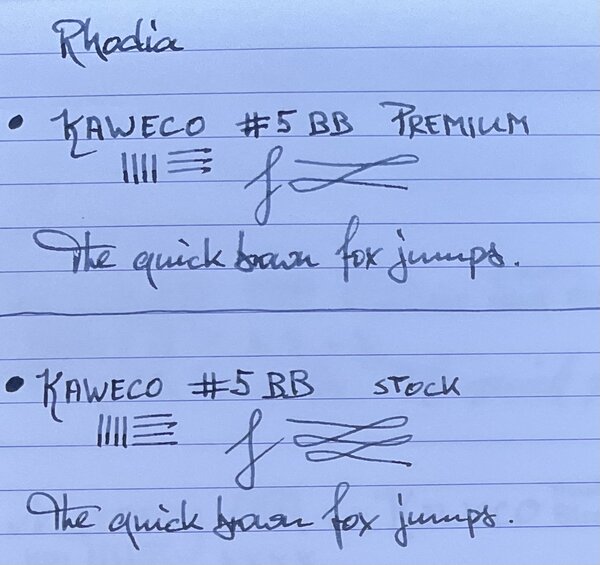 Rhodia
• KAWECO #5 BB PREMIUM
The quick brown fox jumps.
• KAWECO #5 BB STOCK
The quick brown fox jumps.